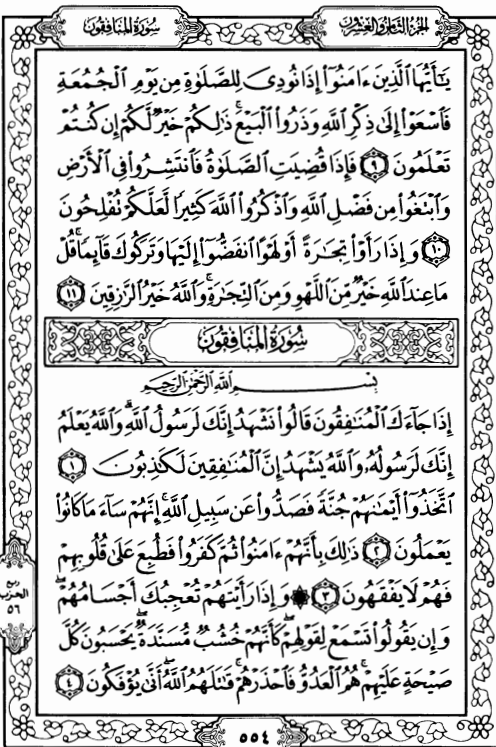 الجزء الثامن والعشرون
سُورَةُ المُنَافِقُونَ
يَٰٓأَيُّهَا ٱلَّذِينَ ءَامَنُوٓا۟ إِذَا نُودِىَ لِلصَّلَوٰةِ مِن يَوْمِ ٱلْجُمُعَةِ
فَٱسْعَوْا۟ إِلَىٰ ذِكْرِ ٱللَّهِ وَذَرُوا۟ ٱلْبَيْعَ ۚ ذَٰلِكُمْ خَيْرٌ لَّكُمْ إِن كُنتُمْ
تَعْلَمُونَ ٩ فَإِذَا قُضِيَتِ ٱلصَّلَوٰةُ فَٱنتَشِرُوا۟ فِى ٱلْأَرْضِ
وَٱبْتَغُوا۟ مِن فَضْلِ ٱللَّهِ وَٱذْكُرُوا۟ ٱللَّهَ كَثِيرًا لَّعَلَّكُمْ تُفْلِحُونَ
١٠ وَإِذَا رَأَوْا۟ تِجَٰرَةً أَوْ لَهْوًا ٱنفَضُّوٓا۟ إِلَيْهَا وَتَرَكُوكَ قَآئِمًا ۚ قُلْ
مَا عِندَ ٱللَّهِ خَيْرٌ مِّنَ ٱللَّهْوِ وَمِنَ ٱلتِّجَٰرَةِ ۚ وَٱللَّهُ خَيْرُ ٱلرَّٰزِقِينَ ١١
سُورَةُ المُنَافِقُونَ
بِسْمِ ٱللَّهِ ٱلرَّحْمَٰنِ ٱلرَّحِيمِ
إِذَا جَآءَكَ ٱلْمُنَٰفِقُونَ قَالُوا۟ نَشْهَدُ إِنَّكَ لَرَسُولُ ٱللَّهِ ۗ وَٱللَّهُ يَعْلَمُ
إِنَّكَ لَرَسُولُهُۥ وَٱللَّهُ يَشْهَدُ إِنَّ ٱلْمُنَٰفِقِينَ لَكَٰذِبُونَ ١
ٱتَّخَذُوٓا۟ أَيْمَٰنَهُمْ جُنَّةً فَصَدُّوا۟ عَن سَبِيلِ ٱللَّهِ ۚ إِنَّهُمْ سَآءَ مَا كَانُوا۟
يَعْمَلُونَ ٢ ذَٰلِكَ بِأَنَّهُمْ ءَامَنُوا۟ ثُمَّ كَفَرُوا۟ فَطُبِعَ عَلَىٰ قُلُوبِهِمْ
فَهُمْ لَا يَفْقَهُونَ ٣ ۞ وَإِذَا رَأَيْتَهُمْ تُعْجِبُكَ أَجْسَامُهُمْ ۖ
وَإِن يَقُولُوا۟ تَسْمَعْ لِقَوْلِهِمْ ۖ كَأَنَّهُمْ خُشُبٌ مُّسَنَّدَةٌ ۖ يَحْسَبُونَ كُلَّ
صَيْحَةٍ عَلَيْهِمْ ۚ هُمُ ٱلْعَدُوُّ فَٱحْذَرْهُمْ ۚ قَٰتَلَهُمُ ٱللَّهُ ۖ أَنَّىٰ يُؤْفَكُونَ ٤
ربع
الحزب
٥٦
٥٥٤